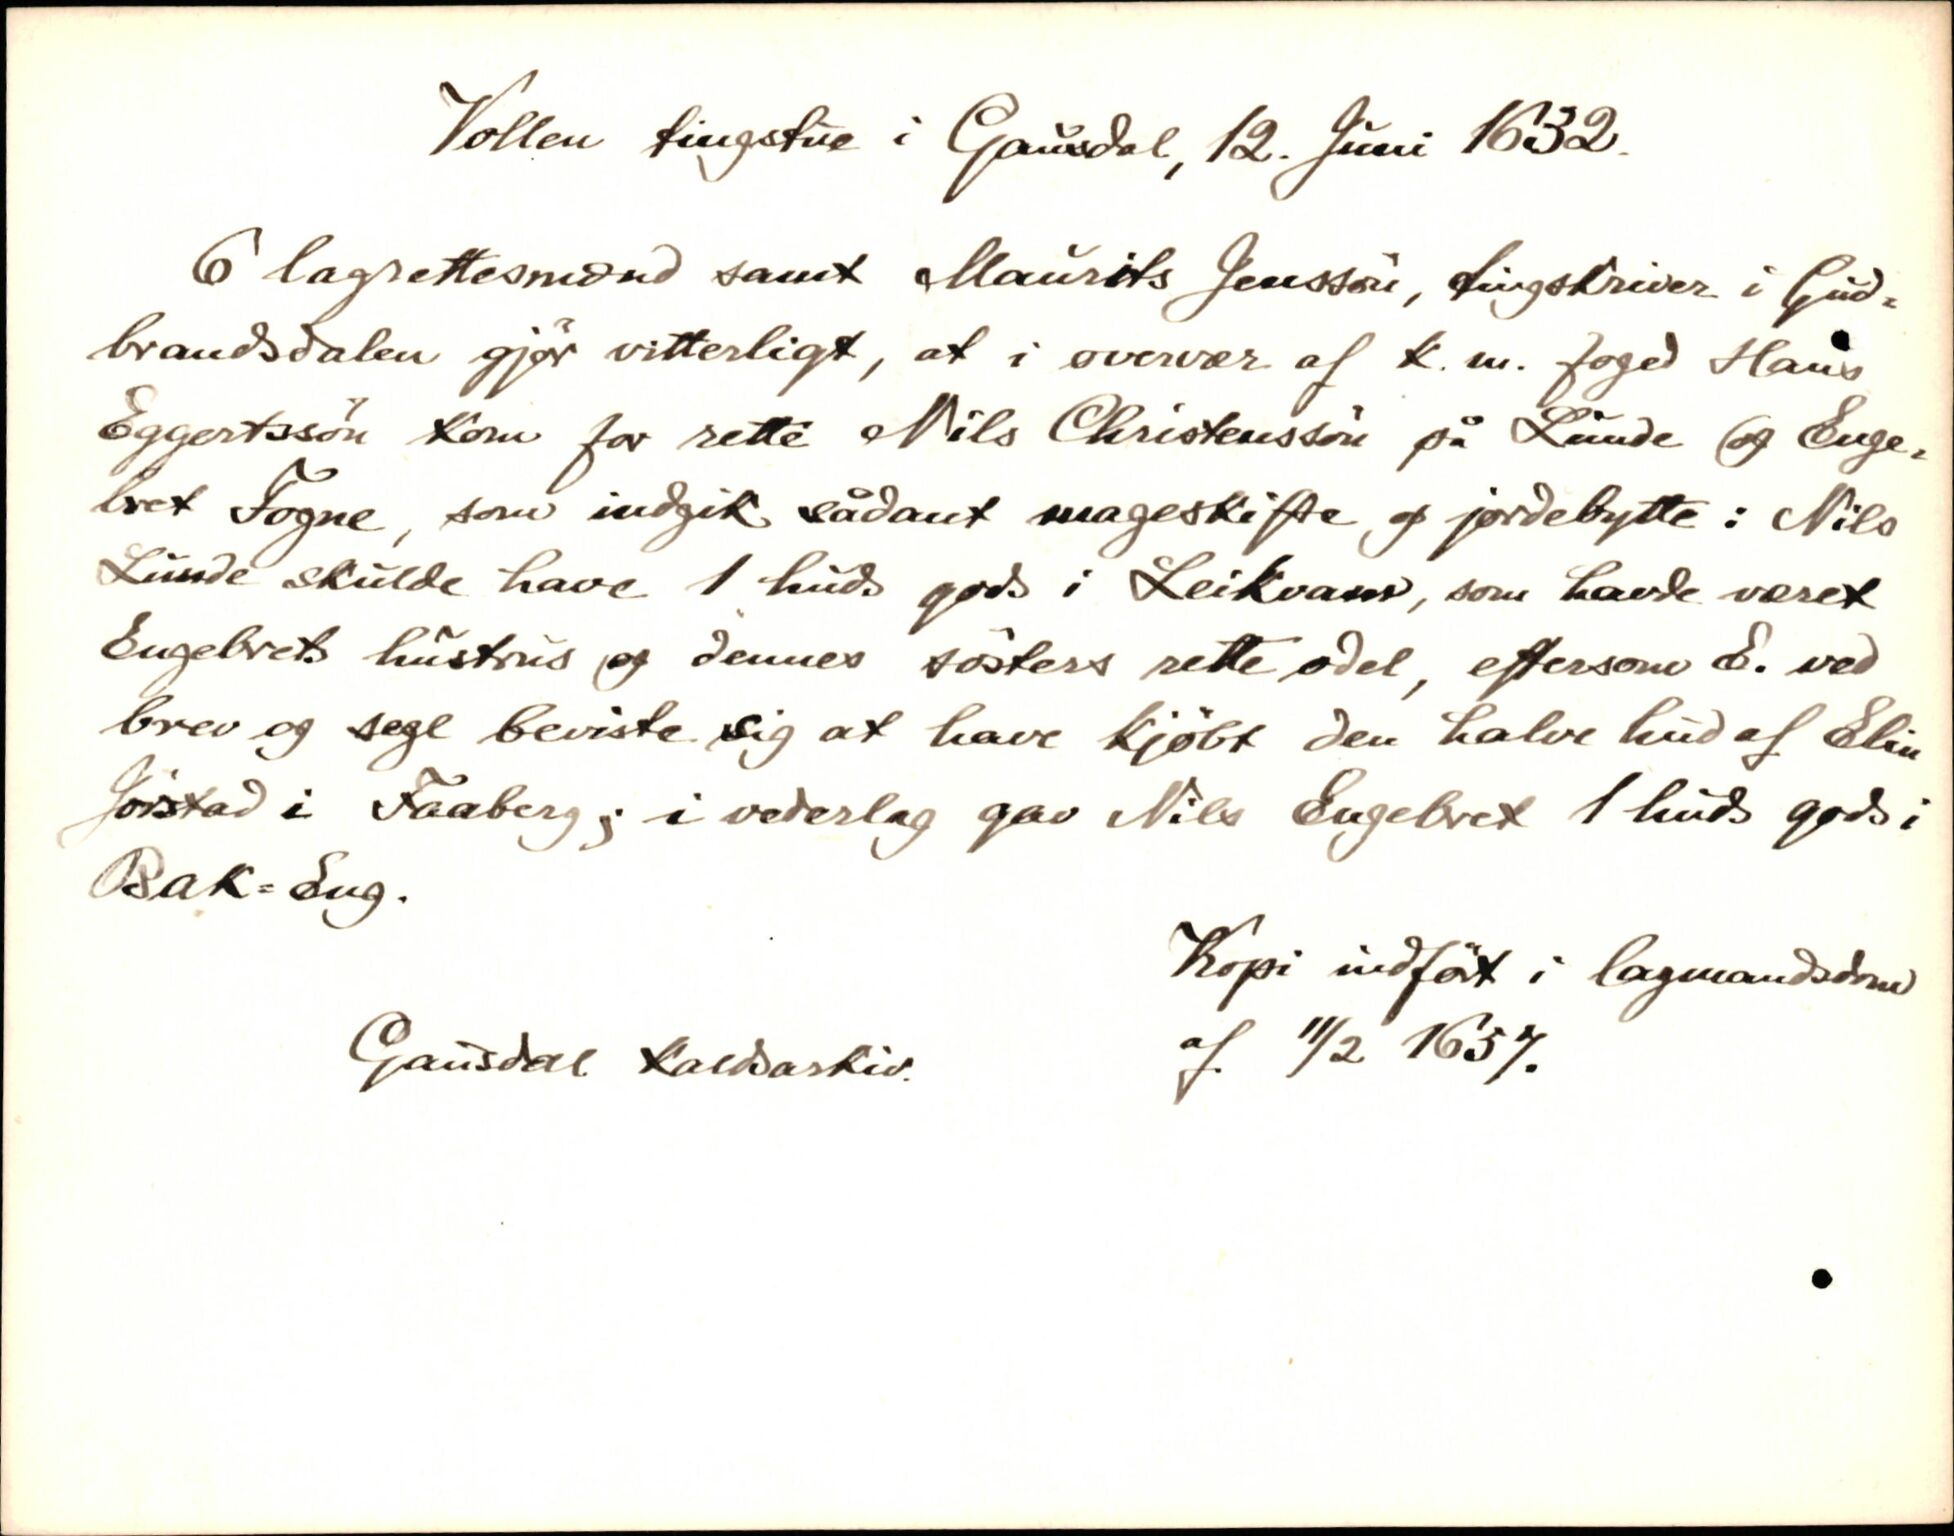 Vollen tingstue i Gausdal, 12. Juni 1632.
6 lagrettesmænd samt Maurits Jenssön, tingskriver i Gud=
brandsdalen gjör vitterligt, at i overvær af k. m. foged Hans
Eggertssön kom for rette Nils Christenssön på Lunde og Enge=
bret Fogne, som indgik sådant mageskifte og jordebytte: Nils
Lunde skulde have 1 huds gods i Leikvam, som havde været
Engebrets hustrus og dennes sösters rette odel, eftersom E. ved
brev og segl beviste sig at have kjöbt den halve hud af Elin
Jörstad i Faaberg; i vederlag gav Nils Engebret 1 huds gods i
Bak=Eng.
Kopi indfört i lagmandsdom
af 11/2 1657.
Gausdal kaldsarkiv.